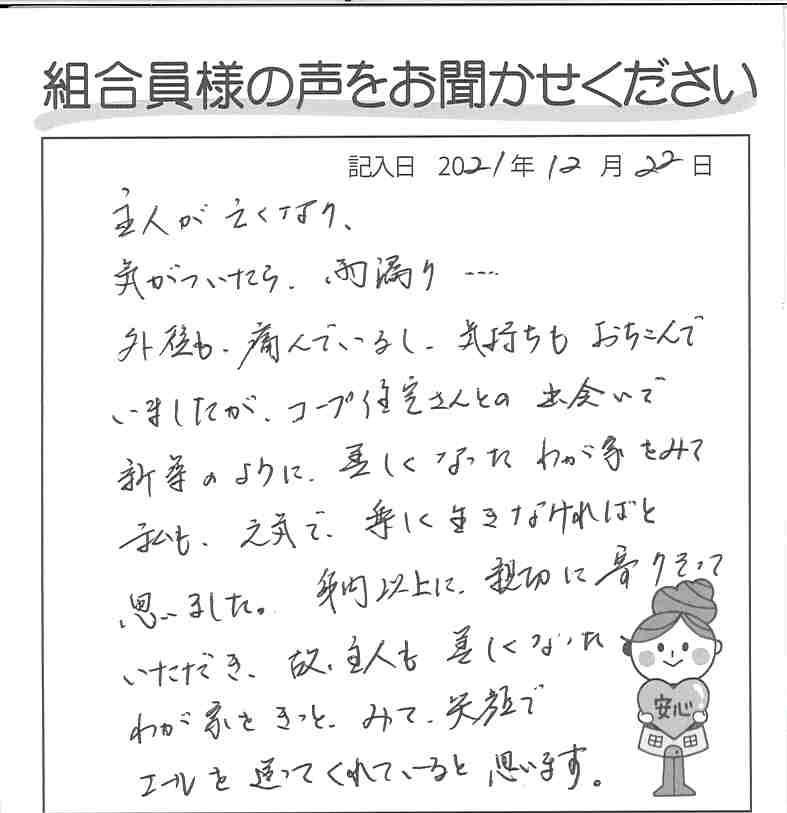 組合員様の声をお聞かせください
記入日 2021年12月22日
主人が亡くなり、
気がついたら、雨漏り ‥‥
外壁も、痛んでいるし、気持ちも おちこんで
いましたが、コープ住宅さんとの 出会いで
新築のように、美しくなった わが家をみて
私も、元気で、楽しく生きなければと
思いました。 身内以上に、親切に寄りそって
いただき、故、主人も 美しくなった
わが家を きっと、みて、笑顔で
エールを送ってくれていると 思います。
安心